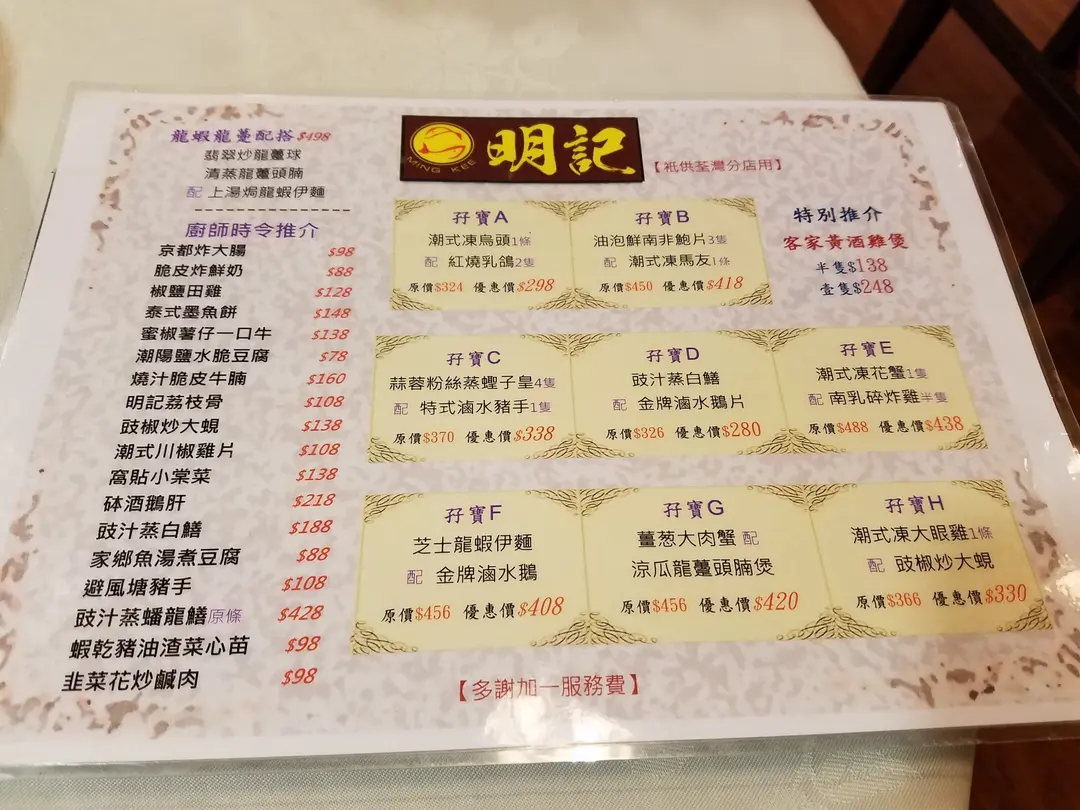 龍蝦龍躉配搭 $498
翡翠炒龍躉球
清蒸龍躉頭腩
配 上湯焗龍蝦伊麵
廚師時令推介
京都炸大腸 $98
脆皮炸鮮奶 $88
椒鹽田雞 $128
泰式墨魚餅 $148
蜜椒薯仔一口牛 $138
潮陽鹽水脆豆腐 $78
燒汁脆皮牛腩 $160
明記荔枝骨 $108
豉椒炒大蜆 $138
潮式川椒雞片 $108
窩貼小棠菜 $138
砵酒鵝肝 $218
豉汁蒸白鱔 $188
家鄉魚湯煮豆腐 $88
避風塘豬手 $108
豉汁蒸蟠龍鱔原條 $428
蝦乾豬油渣菜心苗 $98
韭菜花炒鹹肉 $98
MING KEE
明記
【衹供荃灣分店用】
孖寶A
潮式凍烏頭1條
配 紅燒乳鴿2隻
原價$324 優惠價$298
孖寶B
油泡鮮南非鮑片3隻
配 潮式凍馬友1條
原價$450 優惠價$418
特別推介
客家黃酒雞煲
半隻$138
壹隻$248
孖寶C
蒜蓉粉絲蒸蟶子皇4隻
配 特式滷水豬手1隻
原價$370 優惠價$338
孖寶D
豉汁蒸白鱔
配 金牌滷水鵝片
原價$326 優惠價$280
孖寶E
潮式凍花蟹1隻
配 南乳碎炸雞半隻
原價$488 優惠價$438
孖寶F
芝士龍蝦伊麵
配 金牌滷水鵝
原價$456 優惠價$408
孖寶G
薑葱大肉蟹 配
涼瓜龍躉頭腩煲
原價$456 優惠價$420
孖寶H
潮式凍大眼雞1條
配 豉椒炒大蜆
原價$366 優惠價$330
【多謝加一服務費】